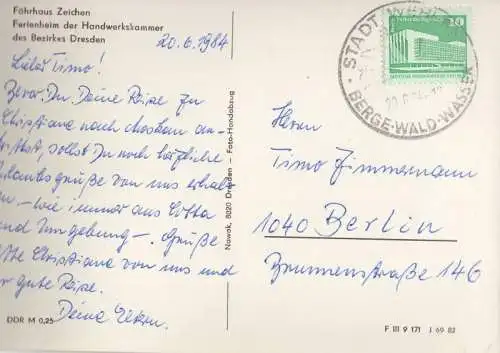 Fährhaus Zeichen
Ferienheim der Handwerkskammer
des Bezirkes Dresden
20.6.1984
Lieber Timo!
Bevor Du Deine Reise zu
Christiane nach Moskau an-
trittst, sollst Du noch herzliche
Urlaubsgrüße von uns erhalt
en - wie immer aus Cotta
und Umgebung -. Grüße
bitte Christiane von uns und
gute Reise.
Deine Eltern.
DDR M 0,25
Nowak, 8020 Dresden – Foto-Handabzug
STADT WEHLEN
BERGE·WALD·WASSER
10
Herrn
Timo Zimmermann
1040 Berlin
Brunnenstraße 146
F III 9 171 J 69 82